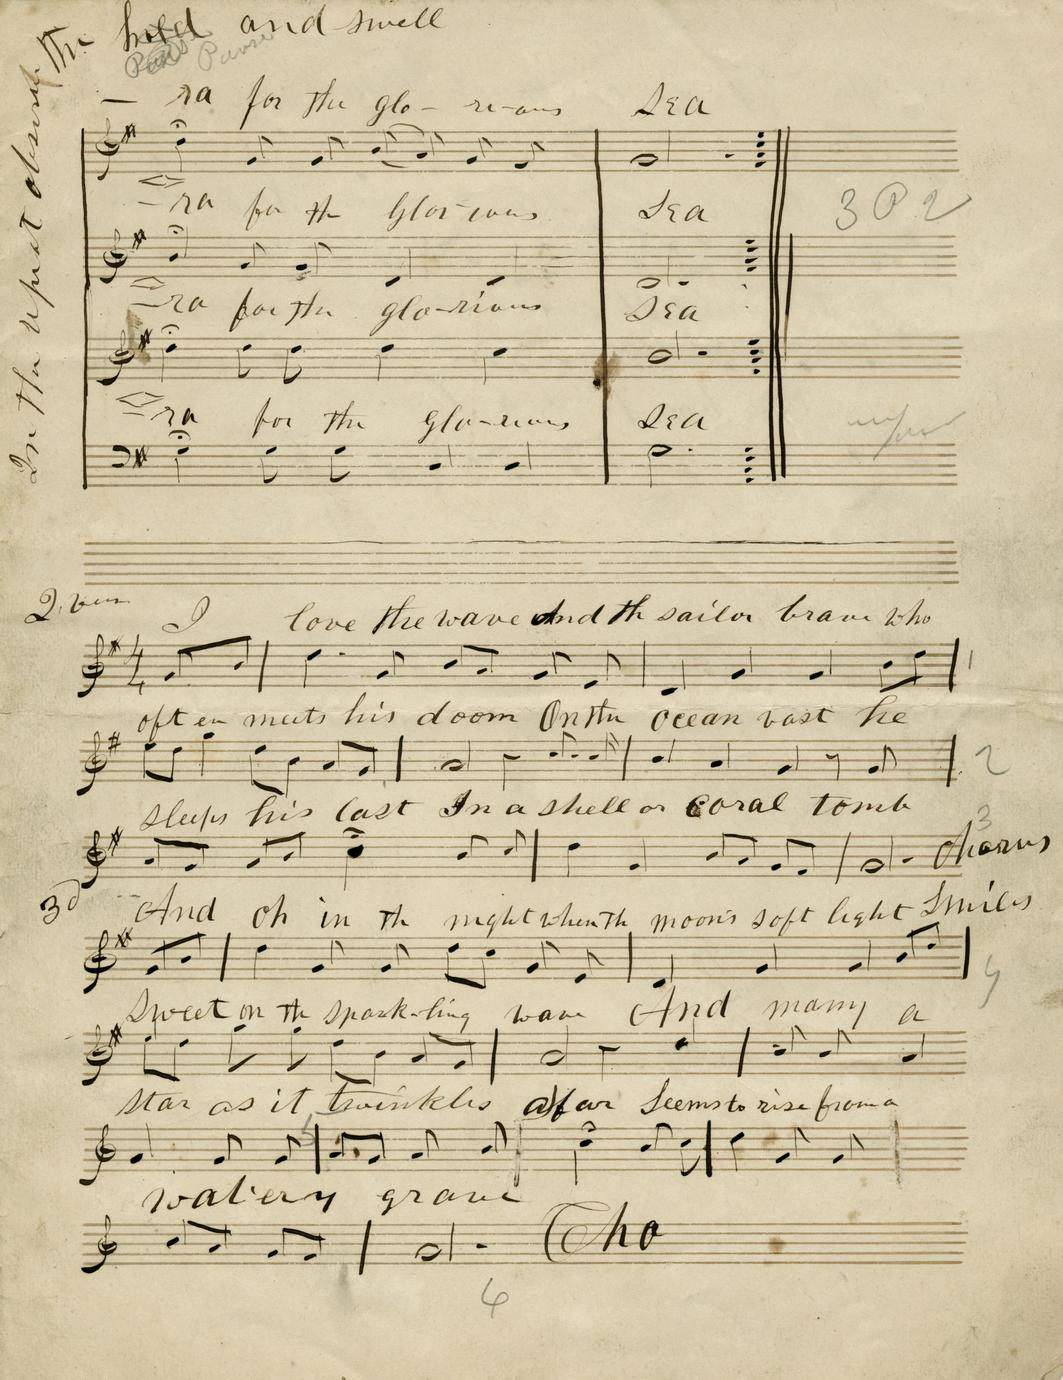 In the repeat observe
the hold and swell
Pause
– ra for the glo – ri-ous Sea
– ra for th Glorious Sea
3 P 2
– ra for the glo-rious Sea
– ra for the glo-rious Sea
2. vers
I love the wave And th sailor brave who
1
oft en meets his doom On the ocean vast he
2
sleeps his last In a shell or Coral tomb
3
Chorus
3d
And oh in th night when th moon's soft light Smiles
4
Sweet on th spark-ling wave And many a
star as it twinkles afar Seems to rise from a
5
watery grave
Cho
6